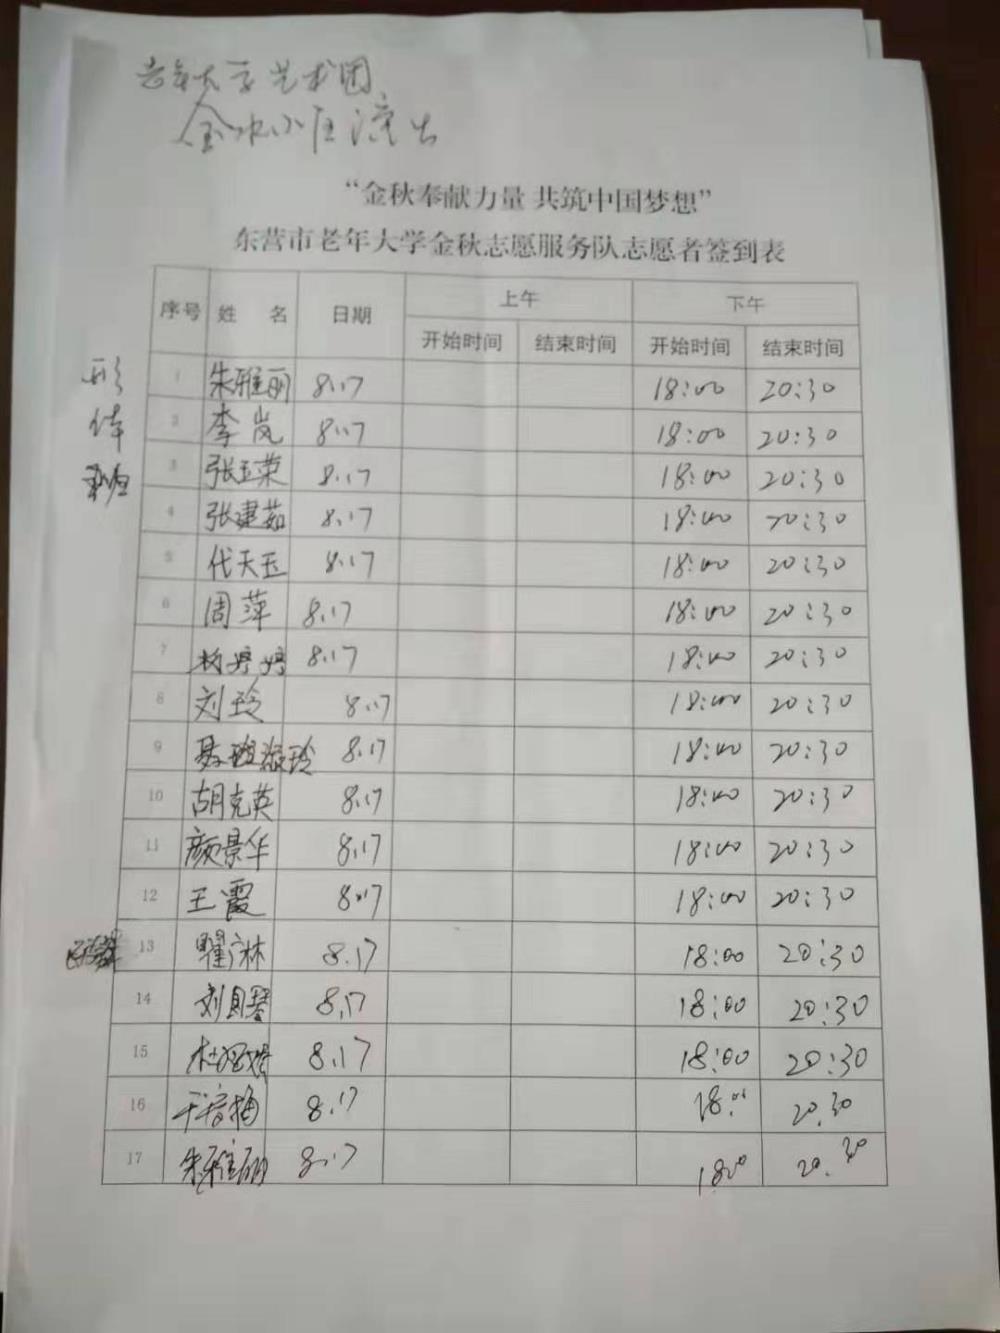 老年大学艺术团
金水小区演出
“金秋奉献力量 共筑中国梦想”
东营市老年大学金秋志愿服务队志愿者签到表
序号 姓 名 日期 上午 下午
开始时间 结束时间 开始时间 结束时间
形体
1 朱雅丽 8.17 18:00 20:30
2 李岚 8.17 18:00 20:30
3 张玉荣 8.17 18:00 20:30
4 张建茹 8.17 18:00 20:30
5 代天玉 8.17 18:00 20:30
6 周萍 8.17 18:00 20:30
7 杨婷婷 8.17 18:00 20:30
8 刘玲 8.17 18:00 20:30
9 玲 8.17 18:00 20:30
10 胡克英 8.17 18:00 20:30
11 颜景华 8.17 18:00 20:30
12 王霞 8.17 18:00 20:30
13 瞿广林 8.17 18:00 20:30
14 刘 8.17 18:00 20:30
15 杜 8.17 18:00 20:30
16 梅 8.17 18:00 20.30
17 朱雅丽 8.17 1800 20.30